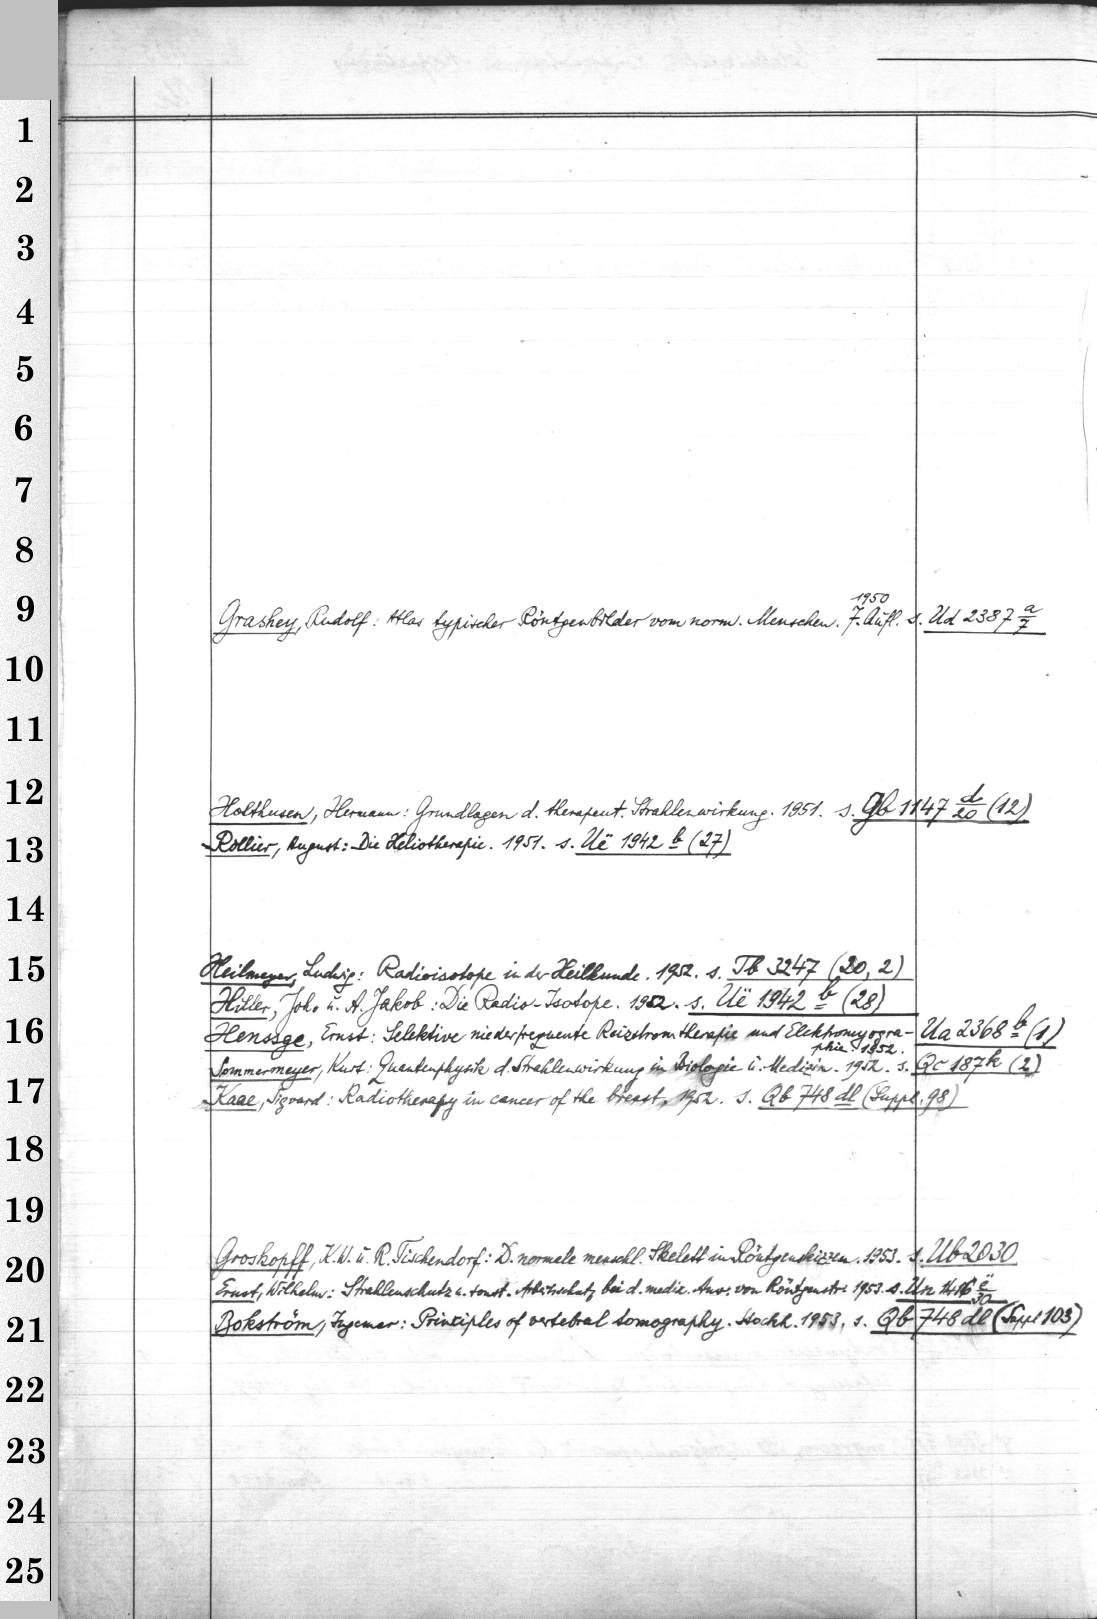 1
2
3
4
5
6
7
8
9
1950
Grashey, Rudolf: Atlas typischer Röntgenbilder vom norm. Menschen. 7. Aufl. s. Ud 2387 a/7
10
11
12
Holthusen, Hermann: Grundlagen d. therapeut. Strahlenwirkung. 1951. s. Qb 1147 d/20 (12)
13
Rollier, August: Die Heliotherapie. 1951. s. Uë 1942 b (27)
14
15
Heilmeyer, Ludwig: Radioisotope in der Heilkunde. 1952. s. Tb 3247 (20, 2)
Hiller, Joh. u. A. Jakob: Die Radio-Isotope. 1952. s. Uë 1942 b (28)
16
Henssge, Ernst: Selektive niederfrequente Reizstromtherapie und Elektromyogra- Ua 2368 b (1)
phie. 1952.
Sommermeyer, Kurt: Quantenphysik d. Strahlenwirkung in Biologie u. Medizin. 1952. s. Qc 187k (2)
17
Kaae, Sigvard: Radiotherapy in cancer of the breast, 1952. s. Qb 748 dl (Suppl. 98)
18
19
20
Groskopff, K.W. u. R. Tischendorf: D. normale menschl. Skelett in Röntgenskizzen. 1953. s. Ub 2030
Ernst, Wilhelm: Strahlenschutz u. sonst. Arbeitsschutz bei d. mediz. Anw. von Röntgenstr. 1953. s. Un
21
Bokström, Ingemar: Principles of vertebral tomography. Stockh. 1953. s. Qb 748 dl (Suppl 103)
22
23
24
25